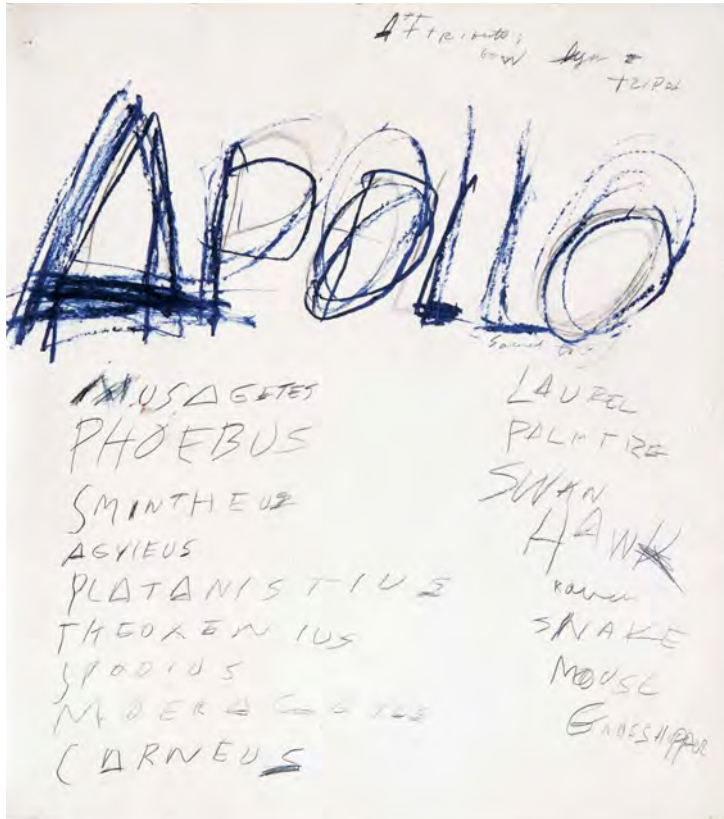 ATTributes
bow lyre &
TRIPOd
APOLLO
Sacred to
MUSAGETES
PHOEBUS
SMINTHEUS
AGYIEUS
PLATANISTIUS
THEOXENIUS
SPODIUS
MOERAGETES
CARNEUS
LAUREL
PALM TREE
SWAN
HAWK
raven
SNAKE
MOUSE
GRASSHOPPER